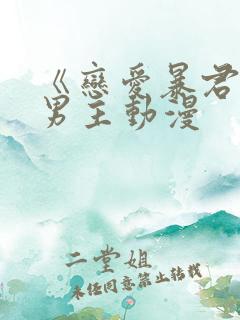 《戀愛暴君
男主動漫
二堂姐
未经同意禁止转载